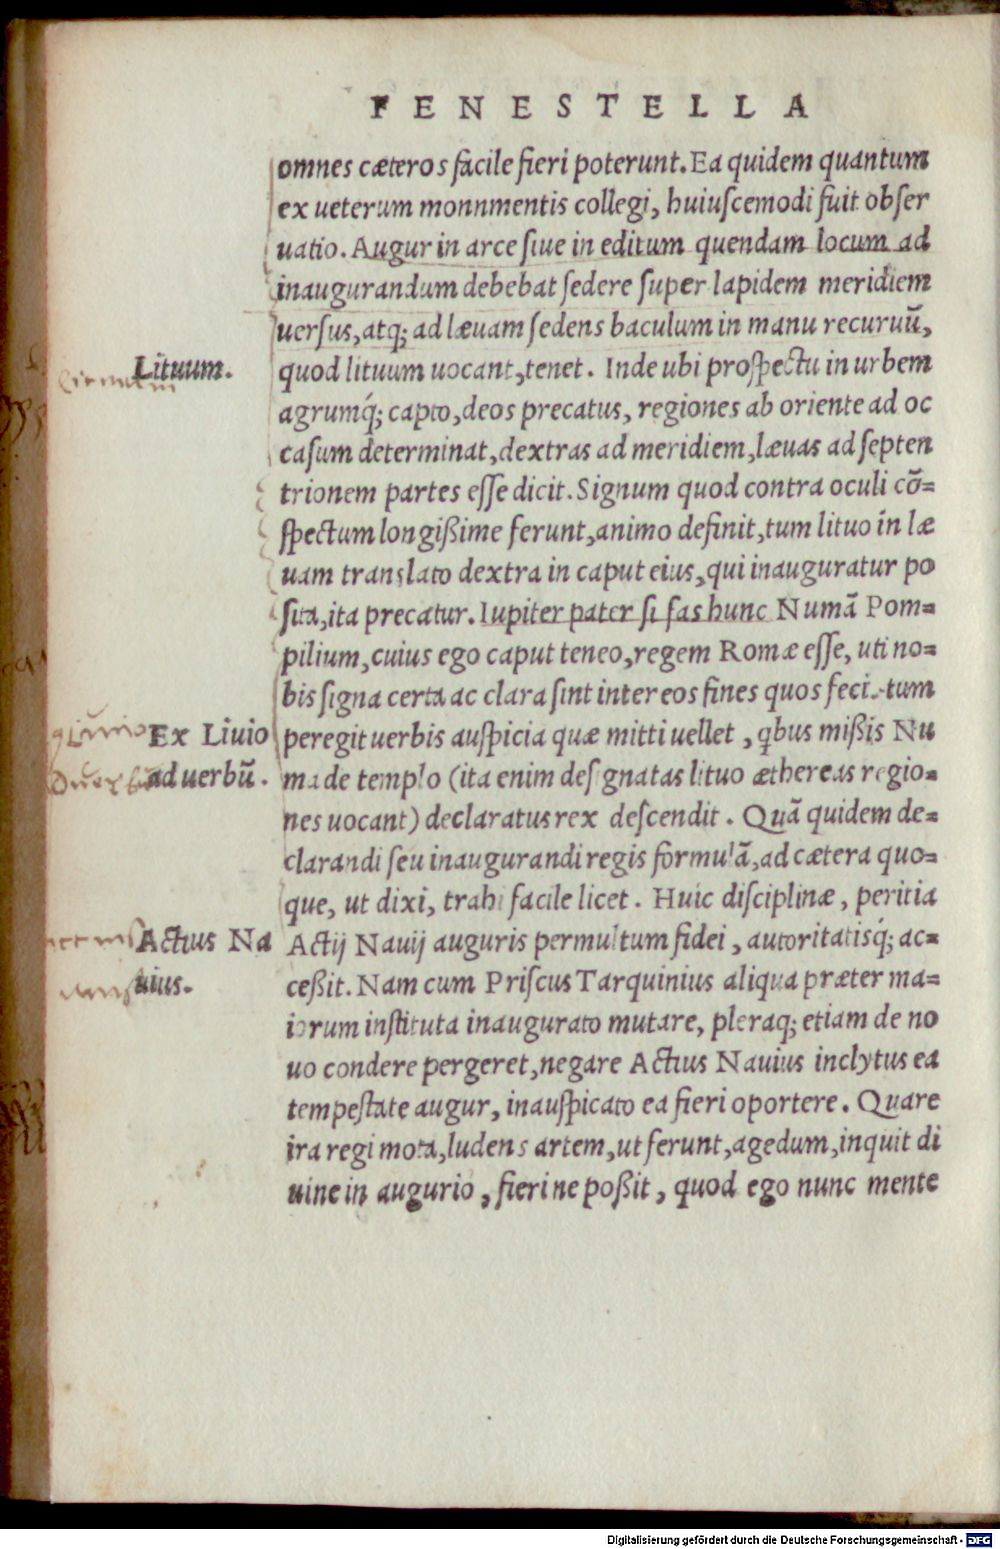 FENESTELLA
omnes cæteros facile fieri poterunt. Ea quidem quantum
ex ueterum monnmentis collegi, huiuſcemodi fuit obſer
uatio. Augur in arce ſiue in editum quendam locum ad
inaugurandum debebat ſedere ſuper lapidem meridiem
uerſus, atq; ad læuam ſedens baculum in manu recuruū,
Lituum.
quod lituum uocant, tenet. Inde ubi proſpectu in urbem
agrumq́; capto, deos precatus, regiones ab oriente ad oc
caſum determinat, dextras ad meridiem, læuas ad ſepten
trionem partes eſſe dicit. Signum quod contra oculi cō=
ſpectum longißime ferunt, animo definit, tum lituo in læ
uam translato dextra in caput eius, qui inauguratur po
ſita, ita precatur. Iupiter pater ſi fas hunc Numā Pom=
pilium, cuius ego caput teneo, regem Romæ eſſe, uti no=
bis ſigna certa ac clara ſint inter eos fines quos feci. tum
Ex Liuio
peregit uerbis auſpicia quæ mitti uellet, qbus mißis Nu
ad uerbū.
ma de templo (ita enim deſignatas lituo æthereas regio=
nes uocant) declaratus rex deſcendit. Quā quidem de=
clarandi ſeu inaugurandi regis formulā, ad cætera quo=
que, ut dixi, trahi facile licet. Huic diſciplinæ, peritia
Actius Na
Actij Nauij auguris permultum fidei, autoritatisq́; ac=
uius.
ceßit. Nam cum Priſcus Tarquinius aliqua præter ma=
iorum inſtituta inaugurato mutare, pleraq; etiam de no
uo condere pergeret, negare Actius Nauius inclytus ea
tempeſtate augur, inauſpicato ea fieri oportere. Quare
ira regi mota, ludens artem, ut ferunt, agedum, inquit di
uine in augurio, fieri ne poßit, quod ego nunc mente
Digitalisierung gefördert durch die Deutsche Forschungsgemeinschaft - DFG